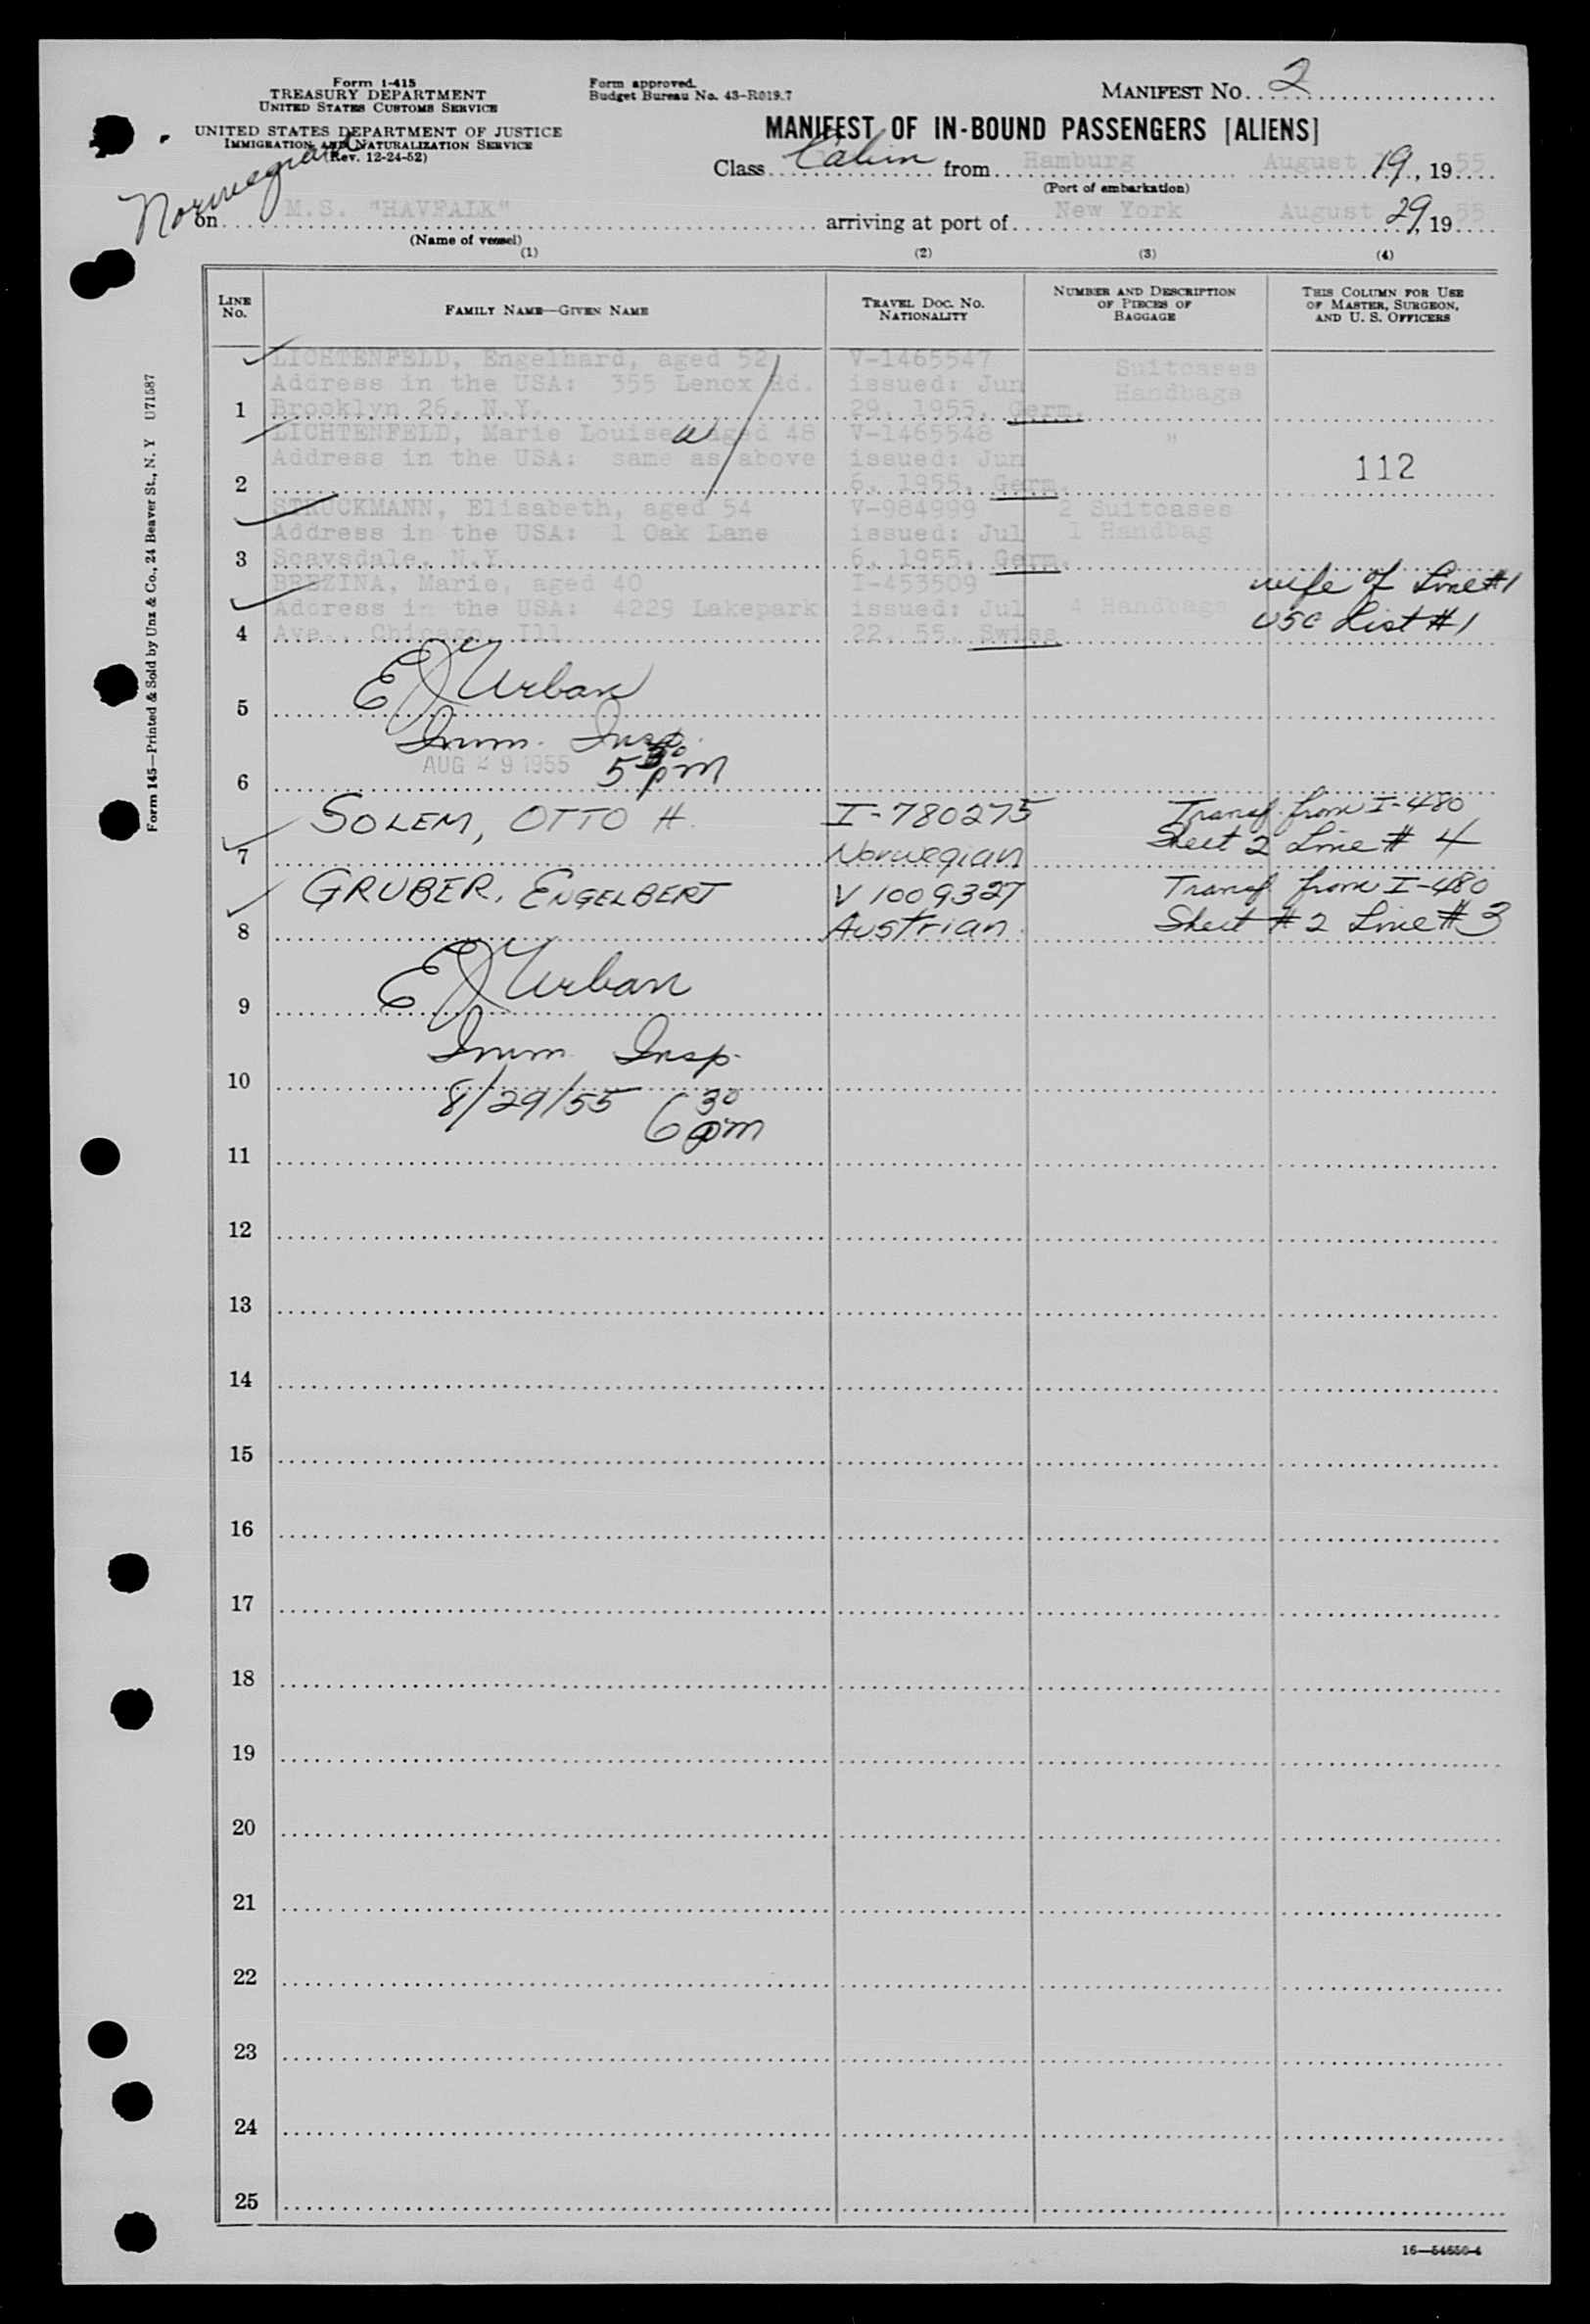 Form I-415
TREASURY DEPARTMENT
UNITED STATES CUSTOMS SERVICE
UNITED STATES DEPARTMENT OF JUSTICE
IMMIGRATION AND NATURALIZATION SERVICE
(Rev. 12-24-52)
Form approved.
Budget Bureau No. 43-R019.7
MANIFEST NO. 2
MANIFEST OF IN-BOUND PASSENGERS [ALIENS]
Class Cabin from Hamburg August 19, 1955
(Port of embarkation)
Norwegian
on M.S. "HAVFALK" arriving at port of New York August 29, 1955
(Name of vessel)
(1) (2) (3) (4)
LINE NO. FAMILY NAME—GIVEN NAME TRAVEL DOC. NO. NATIONALITY NUMBER AND DESCRIPTION OF PIECES OF BAGGAGE THIS COLUMN FOR USE OF MASTER, SURGEON, AND U. S. OFFICERS
LICHTENFELD, Engelhard, aged 52 V-1465547 Suitcases
Address in the USA: 355 Lenox Rd. issued: Jun Handbags
1 Brooklyn 26, N.Y. 29, 1955, Germ.
LICHTENFELD, Marie Louise, aged 48 V-1465548 "
Address in the USA: same as above issued: Jun 112
2 6, 1955, Germ.
STRUCKMANN, Elisabeth, aged 54 V-984999 2 Suitcases
Address in the USA: 1 Oak Lane issued: Jul 1 Handbag
3 Scavsdale, N.Y. 6, 1955, Germ.
BREZINA, Marie, aged 40 I-453509 wife of Line #1
Address in the USA: 4229 Lakepark issued: Jul 4 Handbags USC List #1
4 Ave., Chicago, Ill. 22, 55, Swiss
E J Urban
5
Imm. Insp.
AUG 29 1955 5 30 pm
6
SOLEM, OTTO H. I-780275 Transf. from I-480
7 Norwegian Sheet 2 Line # 4
GRUBER, ENGELBERT V 1009327 Transf from I-480
8 Austrian Sheet #2 Line #3
E J Urban
9
Imm Insp.
10
8/29/55 6 30 pm
11
12
13
14
15
16
17
18
19
20
21
22
23
24
25
16—54656-4
Form 145—Printed & Sold by Unz & Co., 24 Beaver St., N. Y U71587